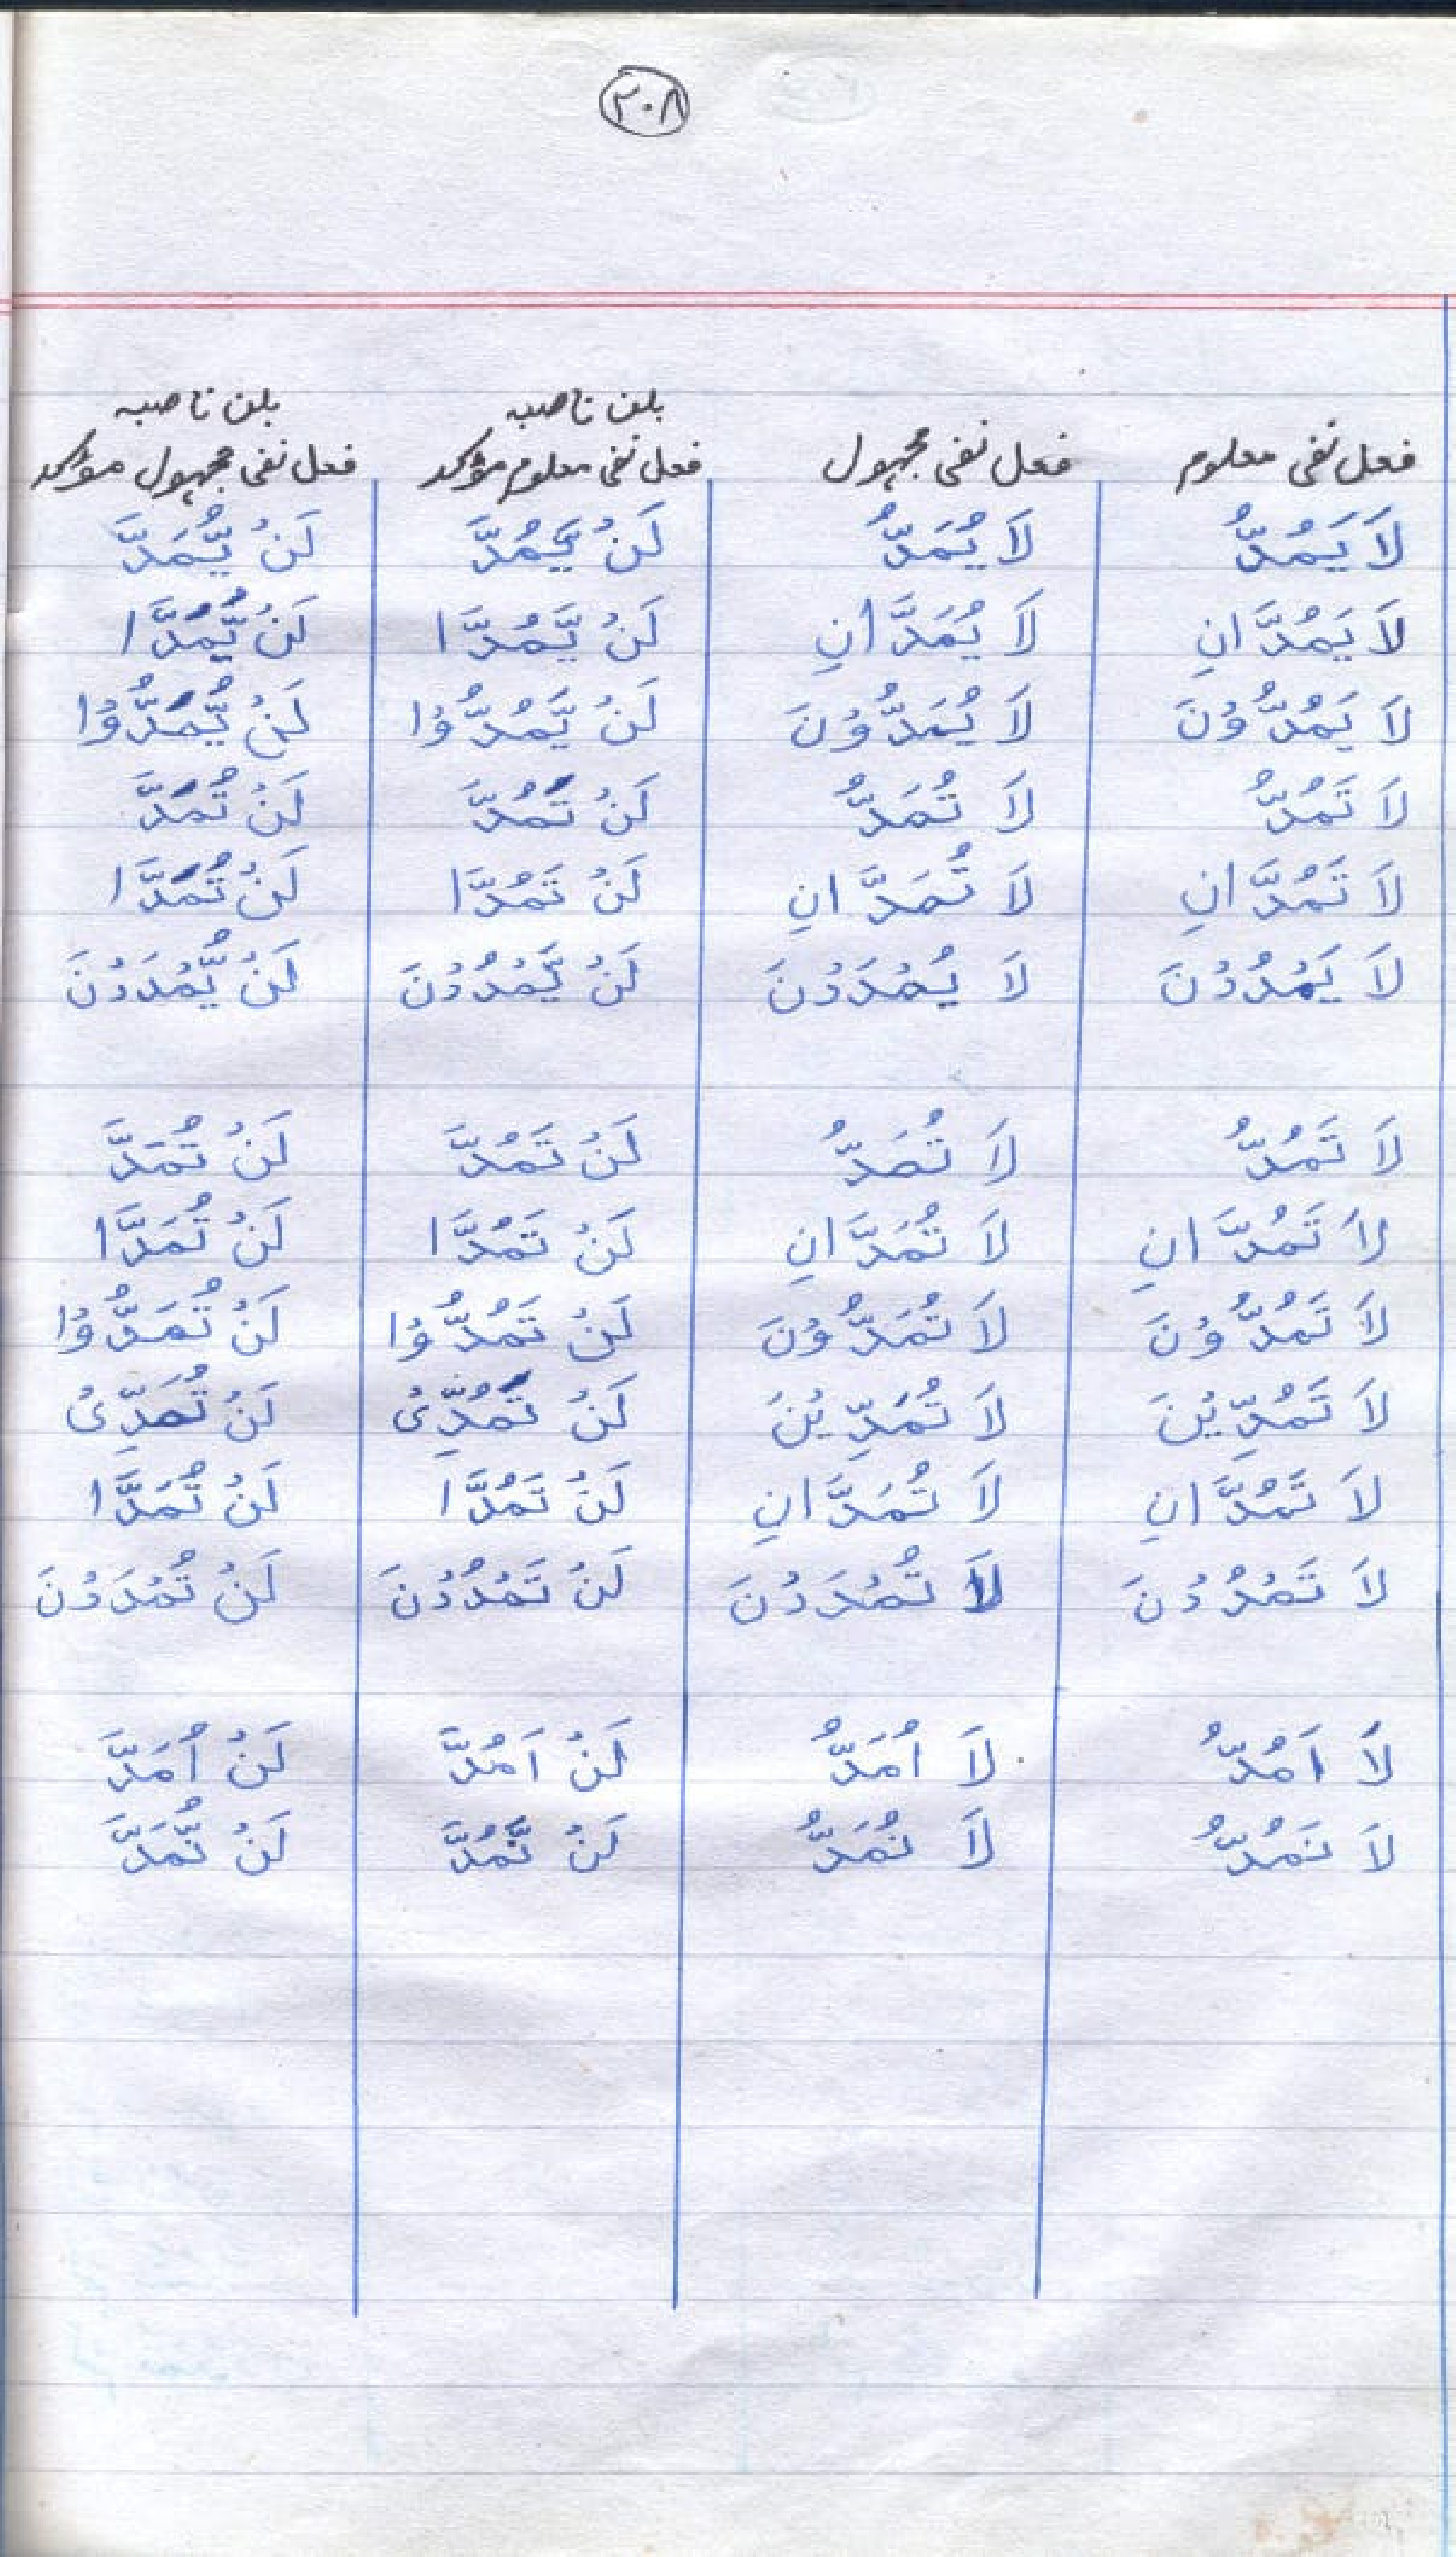 ۲۰۸
بلن ناصبہ بلن ناصبہ
فعل نفی معلوم فعل نفی مجہول فعل نفی معلوم مؤکد فعل نفی مجہول مؤکد
لَا يَمُدُّ لَا يُمَدُّ لَنْ يَّمُدَّ لَنْ يُّمَدَّ
لَا يَمُدَّانِ لَا يُمَدَّانِ لَنْ يَّمُدَّا لَنْ يُّمَدَّا
لَا يَمُدُّوْنَ لَا يُمَدُّوْنَ لَنْ يَّمُدُّوْا لَنْ يُّمَدُّوْا
لَا تَمُدُّ لَا تُمَدُّ لَنْ تَمُدَّ لَنْ تُمَدَّ
لَا تَمُدَّانِ لَا تُمَدَّانِ لَنْ تَمُدَّا لَنْ تُمَدَّا
لَا يَمْدُدْنَ لَا يُمْدَدْنَ لَنْ يَّمْدُدْنَ لَنْ يُّمْدَدْنَ
لَا تَمُدُّ لَا تُمَدُّ لَنْ تَمُدَّ لَنْ تُمَدَّ
لَا تَمُدَّانِ لَا تُمَدَّانِ لَنْ تَمُدَّا لَنْ تُمَدَّا
لَا تَمُدُّوْنَ لَا تُمَدُّوْنَ لَنْ تَمُدُّوْا لَنْ تُمَدُّوْا
لَا تَمُدِّيْنَ لَا تُمَدِّيْنَ لَنْ تَمُدِّىْ لَنْ تُمَدِّىْ
لَا تَمُدَّانِ لَا تُمَدَّانِ لَنْ تَمُدَّا لَنْ تُمَدَّا
لَا تَمْدُدْنَ لَا تُمْدَدْنَ لَنْ تَمْدُدْنَ لَنْ تُمْدَدْنَ
لَا اَمُدُّ لَا اُمَدُّ لَنْ اَمُدَّ لَنْ اُمَدَّ
لَا نَمُدُّ لَا نُمَدُّ لَنْ نَّمُدَّ لَنْ نُّمَدَّ